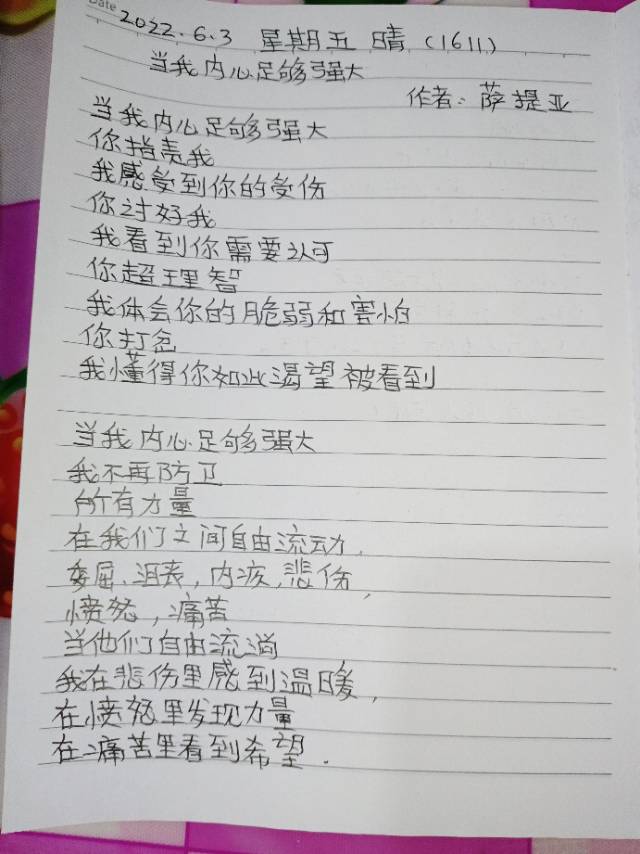 Date 2022.6.3 星期五 晴(1611)
当我内心足够强大
作者:萨提亚
当我内心足够强大
你指责我
我感受到你的受伤
你讨好我
我看到你需要认可
你超理智
我体会你的脆弱和害怕
你打岔
我懂得你如此渴望被看到
当我内心足够强大
我不再防卫
所有力量
在我们之间自由流动,
委屈、沮丧,内疚,悲伤,
愤怒,痛苦
当他们自由流淌
我在悲伤里感到温暖,
在愤怒里发现力量
在痛苦里看到希望.